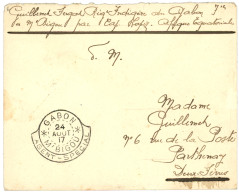 Guillemet Sergt Rég. Indigène du Gabon
à M'Bigou par Cap Lopez Afrique Equatoriale
F. M.
GABON
24
AOUT
17
M'BIGOU
AGENT-SPECIAL
Madame
Guillemet
No 6 rue de la Poste
Parthenay
Deux-Sèvres